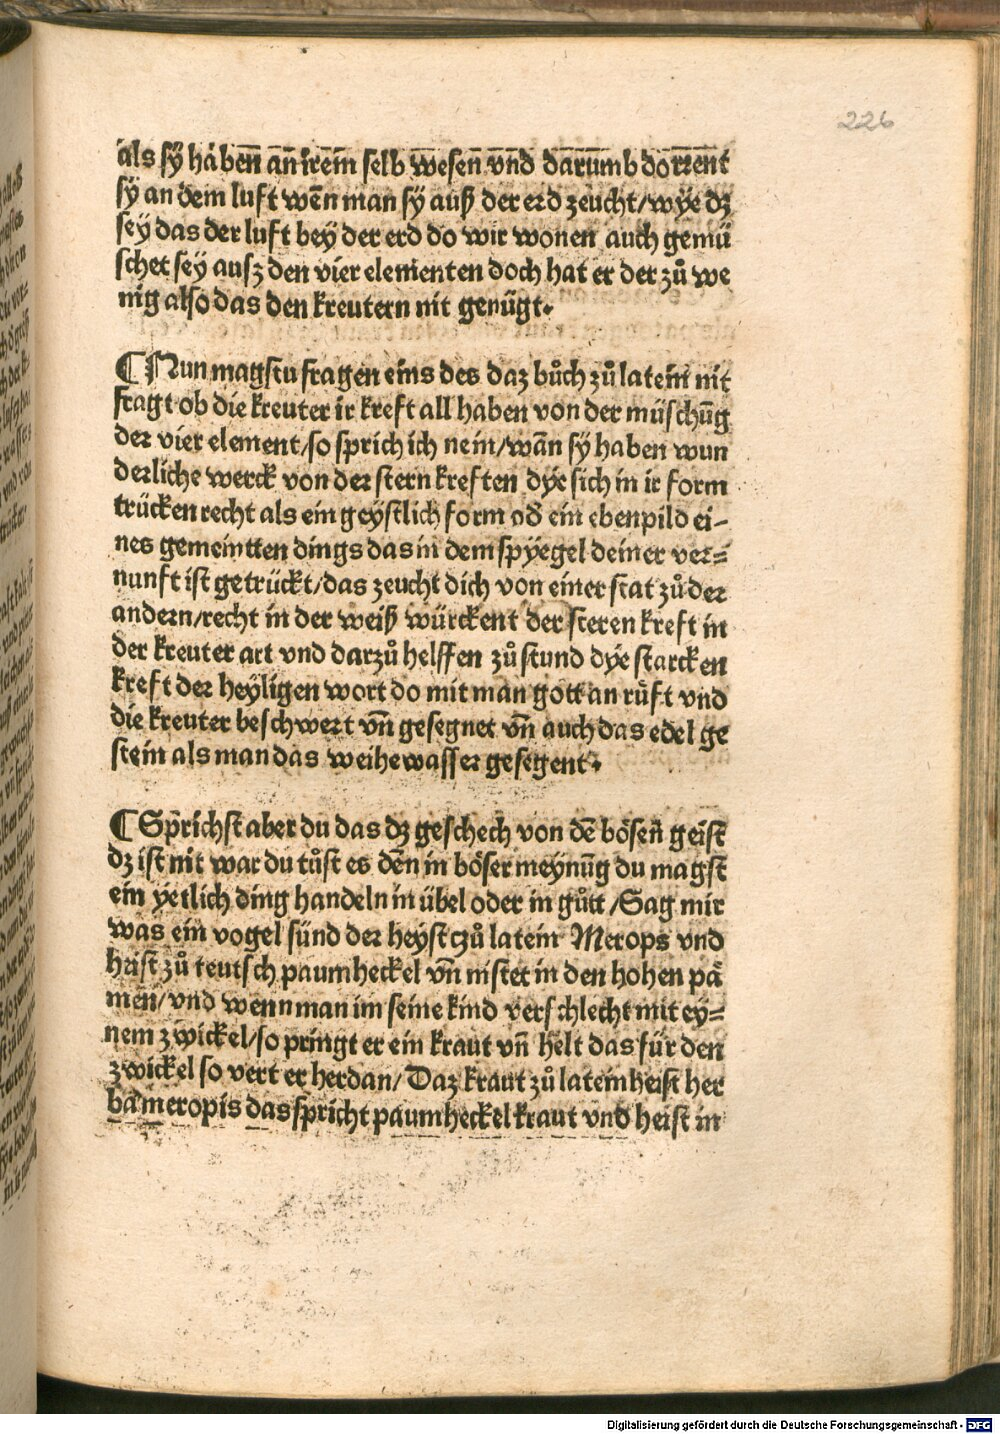 226
als sy haben an irem selb wesen vnd darumb dorrent
sy an dem luft weñ man sy auß der erd zeucht/wye dz
sey das der luft bey der erd do wir wonen auch gemü
schet sey ausz den vier elementen doch hat er der zů we
nig also das den kreutern nit genügt.
¶ Nun magstu fragen eins des daz bůch zů latein nit
fragt ob die kreuter ir kreft all haben von der müschūg
der vier element/so sprich ich nein/wañ sy haben wun
derliche werck von der stern kreften dye sich in ir form
trücken recht als ein geystlich form od̄ ein ebenpild ei-
nes gemeintten dings das in dem spyegel deiner ver=
nunft ist getrückt/das zeucht dich von einer stat zů der
andern/recht in der weiß würckent der steren kreft in
der kreuter art vnd darzů helffen zů stund dye starcken
kreft der heyligen wort do mit man gott an růft vnd
die kreuter beschwert vñ gesegnet vñ auch das edel ge
stein als man das weihewasser gesegent.
¶ Sprichst aber du das dz geschech von dē bösen geist
dz ist nit war du tůst es deñ in böser meynūg du magst
ein yetlich ding handeln in übel oder in gůtt/Sag mir
was ein vogel sünd der heyst czů latein Merops vnd
haist zů teutsch paumheckel vñ nistet in den hohen pä
men/vnd wenn man im seine kind verschlecht mit ey=
nem zwickel/so pringt er ein kraut vñ helt das für den
zwickel so vert er herdan/Daz kraut zů latein heist her
ba meropis das spricht paumheckelkraut vnd heist in
Digitalisierung gefördert durch die Deutsche Forschungsgemeinschaft - DFG